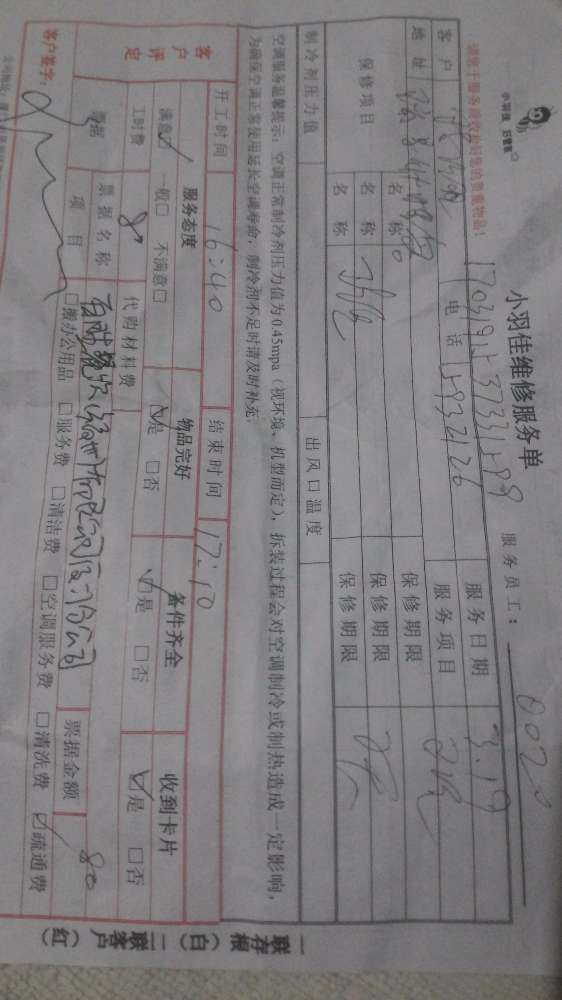 小羽佳 好管家
小羽佳维修服务单
请您于服务前收拾好您的贵重物品!
17031915373315899
服务员工: 0020
客户 电话 5932126 服务日期 3.19
地址 服务项目
保修项目 名称 保修期限
名称 保修期限
名称 保修期限
制冷剂压力值 出风口温度
空调服务温馨提示:空调正常制冷剂压力值为0.45mpa(视环境、机型而定),拆装过程会对空调制冷或制热造成一定影响,
为确保空调正常使用延长空调寿命,制冷剂不足时请及时补充。
开工时间 16:40 结束时间 17:10
客户评定 服务态度 物品完好 备件齐全 收到卡片
满意☑ 一般□ 不满意□ ☑是 □否 ☑是 □否 ☑是 □否
工时费 80 代购材料费
票据 票据名称 票据金额 80
项目 □搬办公用品 □服务费 □清洁费 □空调服务费 □清洗费 ☑疏通费
客户签字:
一联存根(白) 二联客户(红)